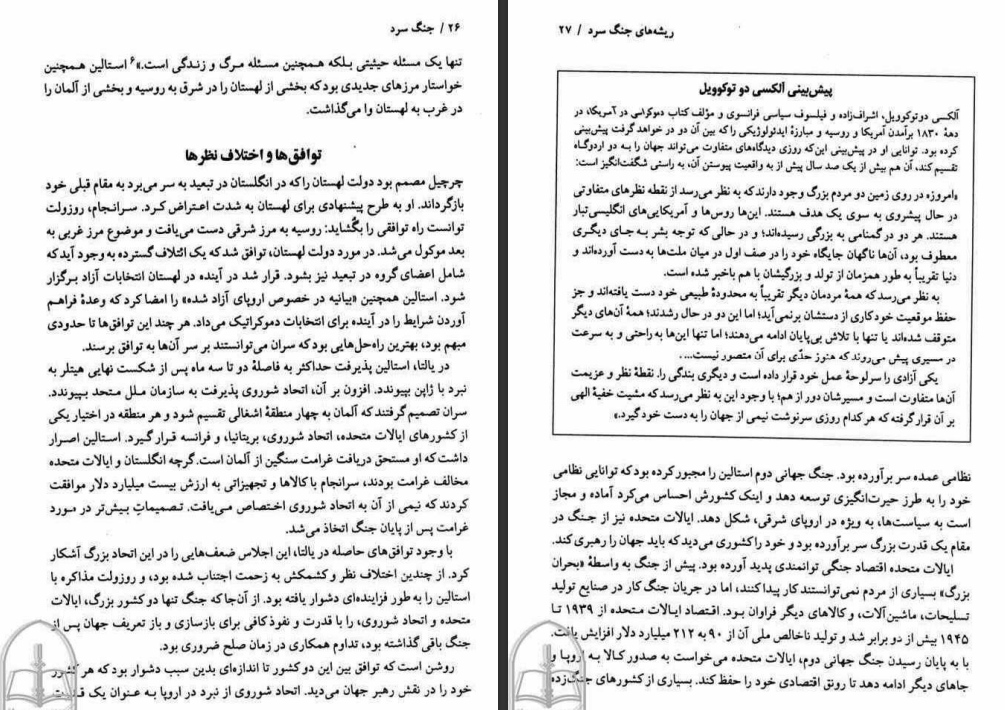 ۲۶ / جنگ سرد
تنها یک مسئله حیثیتی بلکه همچنین مسئله مرگ و زندگی است.»۶ استالین همچنین
خواستار مرزهای جدیدی بود که بخشی از لهستان را در شرق به روسیه و بخشی از آلمان را
در غرب به لهستان وا می‌گذاشت.
توافق‌ها و اختلاف نظرها
چرچیل مصمم بود دولت لهستان را که در انگلستان در تبعید به سر می‌برد به مقام قبلی خود
بازگرداند. او به طرح پیشنهادی برای لهستان به شدت اعتراض کرد. سرانجام، روزولت
توانست راه توافقی را بگشاید: روسیه به مرز شرقی دست می‌یافت و موضوع مرز غربی به
بعد موکول می‌شد. در مورد دولت لهستان، توافق شد که یک ائتلاف گسترده به وجود آید که
شامل اعضای گروه در تبعید نیز بشود. قرار شد در آینده در لهستان انتخابات آزاد برگزار
شود. استالین همچنین «بیانیه در خصوص اروپای آزاد شده» را امضا کرد که وعدهٔ فراهم
آوردن شرایط را در آینده برای انتخابات دموکراتیک می‌داد. هر چند این توافق‌ها تا حدودی
مبهم بود، بهترین راه‌حل‌هایی بود که سران می‌توانستند بر سر آن‌ها به توافق برسند.
در یالتا، استالین پذیرفت حداکثر به فاصلهٔ دو تا سه ماه پس از شکست نهایی هیتلر به
نبرد با ژاپن بپیوندد. افزون بر آن، اتحاد شوروی پذیرفت به سازمان ملل متحد بپیوندد.
سران تصمیم گرفتند که آلمان به چهار منطقهٔ اشغالی تقسیم شود و هر منطقه در اختیار یکی
از کشورهای ایالات متحده، اتحاد شوروی، بریتانیا، و فرانسه قرار گیرد. استالین اصرار
داشت که او مستحق دریافت غرامت سنگین از آلمان است. گرچه انگلستان و ایالات متحده
مخالف غرامت بودند، سرانجام با کالاها و تجهیزاتی به ارزش بیست میلیارد دلار موافقت
کردند که نیمی از آن به اتحاد شوروی اختصاص می‌یافت. تصمیمات بیش‌تر در مورد
غرامت پس از پایان جنگ اتخاذ می‌شد.
با وجود توافق‌های حاصله در یالتا، این اجلاس ضعف‌هایی را در این اتحاد بزرگ آشکار
کرد. از چندین اختلاف نظر و کشمکش به زحمت اجتناب شده بود، و روزولت مذاکره با
استالین را به طور فزاینده‌ای دشوار یافته بود. از آن‌جا که جنگ تنها دو کشور بزرگ، ایالات
متحده و اتحاد شوروی، را با قدرت و نفوذ کافی برای بازسازی و باز تعریف جهان پس از
جنگ باقی گذاشته بود، تداوم همکاری در زمان صلح ضروری بود.
روشن است که توافق بین این دو کشور تا اندازه‌ای بدین سبب دشوار بود که هر کشور
خود را در نقش رهبر جهان می‌دید. اتحاد شوروی از نبرد در اروپا به عنوان یک قدرت
ریشه‌های جنگ سرد / ۲۷
پیش‌بینی آلکسی دو توکوویل
آلکسی دوتوکوویل، اشراف‌زاده و فیلسوف سیاسی فرانسوی و مؤلف کتاب دموکراسی در آمریکا، در
دههٔ ۱۸۳۰ برآمدن آمریکا و روسیه و مبارزهٔ ایدئولوژیکی را که بین آن دو در خواهد گرفت پیش‌بینی
کرده بود. توانایی او در پیش‌بینی این‌که روزی دیدگاه‌های متفاوت می‌تواند جهان را به دو اردوگاه
تقسیم کند، آن هم بیش از یک صد سال پیش از به واقعیت پیوستن آن، به راستی شگفت‌انگیز است:
«امروزه در روی زمین دو مردم بزرگ وجود دارند که به نظر می‌رسد از نقطه نظرهای متفاوتی
در حال پیشروی به سوی یک هدف هستند. این‌ها روس‌ها و آمریکایی‌های انگلیسی‌تبار
هستند. هر دو در گمنامی به بزرگی رسیده‌اند؛ و در حالی که توجه بشر به جای دیگری
معطوف بود، آن‌ها ناگهان جایگاه خود را در صف اول در میان ملت‌ها به دست آورده‌اند و
دنیا تقریباً به طور همزمان از تولد و بزرگیشان با هم باخبر شده است.
به نظر می‌رسد که همهٔ مردمان دیگر تقریباً به محدودهٔ طبیعی خود دست یافته‌اند و جز
حفظ موقعیت خود کاری از دستشان برنمی‌آید؛ اما این دو در حال رشدند؛ همهٔ آن‌های دیگر
متوقف شده‌اند یا تنها با تلاش بی‌پایان ادامه می‌دهند؛ اما تنها این‌ها به راحتی و به سرعت
در مسیری پیش می‌روند که هنوز حدّی برای آن متصور نیست....
یکی آزادی را سرلوحهٔ عمل خود قرار داده است و دیگری بندگی را. نقطهٔ نظر و عزیمت
آن‌ها متفاوت است و مسیرشان دور از هم؛ با وجود این به نظر می‌رسد که مشیت خفیهٔ الهی
بر آن قرار گرفته که هر کدام روزی سرنوشت نیمی از جهان را به دست خود گیرد.»
نظامی عمده سر برآورده بود. جنگ جهانی دوم استالین را مجبور کرده بود که توانایی نظامی
خود را به طرز حیرت‌انگیزی توسعه دهد و اینک کشورش احساس می‌کرد آماده و مجاز
است به سیاست‌ها، به ویژه در اروپای شرقی، شکل دهد. ایالات متحده نیز از جنگ در
مقام یک قدرت بزرگ سر برآورده بود و خود را کشوری می‌دید که باید جهان را رهبری کند.
ایالات متحده اقتصاد جنگی توانمندی پدید آورده بود. پیش از جنگ به واسطهٔ «بحران
بزرگ» بسیاری از مردم نمی‌توانستند کار پیدا کنند، اما در جریان جنگ کار در صنایع تولید
تسلیحات، ماشین‌آلات، و کالاهای دیگر فراوان بود. اقتصاد ایالات متحده از ۱۹۳۹ تا
۱۹۴۵ بیش از دو برابر شد و تولید ناخالص ملی آن از ۹۰ به ۲۱۲ میلیارد دلار افزایش یافت.
با به پایان رسیدن جنگ جهانی دوم، ایالات متحده می‌خواست به صدور کالا به اروپا و
جاهای دیگر ادامه دهد تا رونق اقتصادی خود را حفظ کند. بسیاری از کشورهای جنگ‌زده